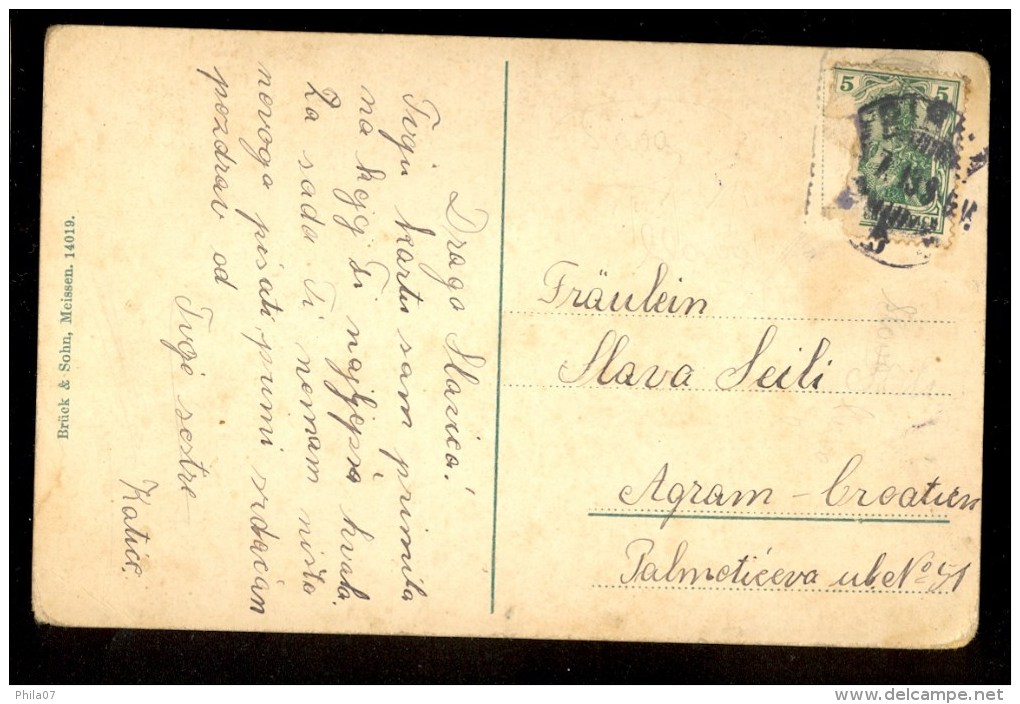 Draga Slavica!
Tvoju kartu sam primila
na kojoj Ti najljepša hvala.
Za sada Ti nemam ništa
novoga pisati, primi srdačan
pozdrav od
Tvoje sestre
Katice.
Fräulein
Slava Seili
Agram – Croatien
Palmotićeva ul. No 51
Brück & Sohn, Meissen. 14019.
5 5
Phila07
delcampe.net